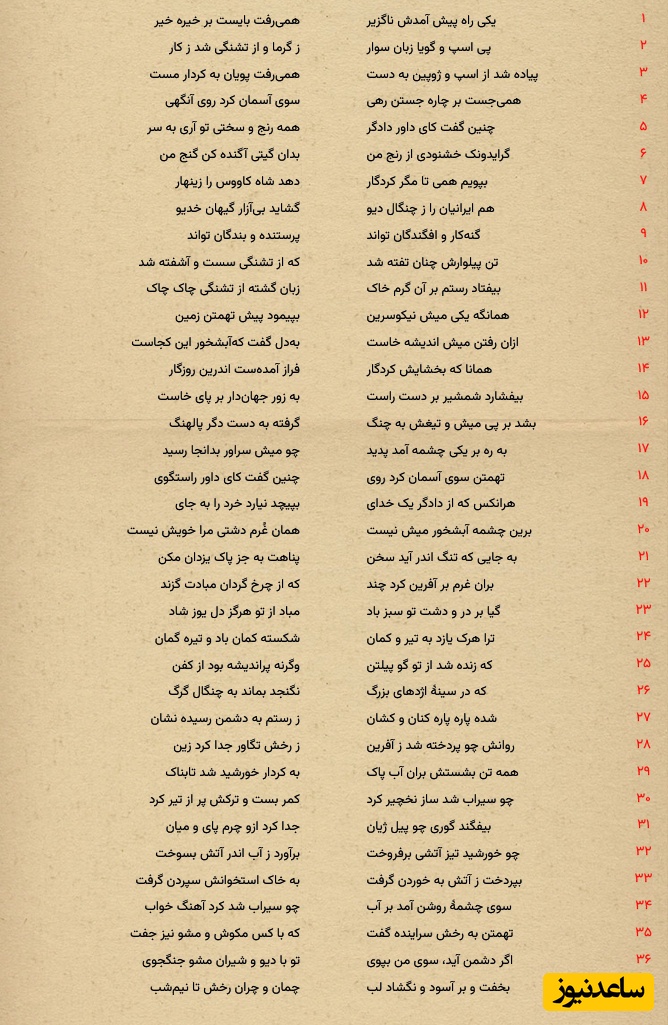 ۱ یکی راه پیش آمدش ناگزیر همی‌رفت بایست بر خیره خیر
۲ پی اسپ و گویا زبان سوار ز گرما و از تشنگی شد ز کار
۳ پیاده شد از اسپ و ژوپین به دست همی‌رفت پویان به کردار مست
۴ همی‌جست بر چاره جستن رهی سوی آسمان کرد روی آنگهی
۵ چنین گفت کای داور دادگر همه رنج و سختی تو آری به سر
۶ گرایدونک خشنودی از رنج من بدان گیتی آگنده کن گنج من
۷ بپویم همی تا مگر کردگار دهد شاه کاووس را زینهار
۸ هم ایرانیان را ز چنگال دیو گشاید بی‌آزار گیهان خدیو
۹ گنه‌کار و افگندگان تواند پرستنده و بندگان تواند
۱۰ تن پیلوارش چنان تفته شد که از تشنگی سست و آشفته شد
۱۱ بیفتاد رستم بر آن گرم خاک زبان گشته از تشنگی چاک چاک
۱۲ همانگه یکی میش نیکوسرین بپیمود پیش تهمتن زمین
۱۳ ازان رفتن میش اندیشه خاست به‌دل گفت که‌آبشخور این کجاست
۱۴ همانا که بخشایش کردگار فراز آمده‌ست اندرین روزگار
۱۵ بیفشارد شمشیر بر دست راست به زور جهان‌دار بر پای خاست
۱۶ بشد بر پی میش و تیغش به چنگ گرفته به دست دگر پالهنگ
۱۷ به ره بر یکی چشمه آمد پدید چو میش سراور بدانجا رسید
۱۸ تهمتن سوی آسمان کرد روی چنین گفت کای داور راستگوی
۱۹ هرانکس که از دادگر یک خدای بپیچد نیارد خرد را به جای
۲۰ برین چشمه آبشخور میش نیست همان غُرم دشتی مرا خویش نیست
۲۱ به جایی که تنگ اندر آید سخن پناهت به جز پاک یزدان مکن
۲۲ بران غرم بر آفرین کرد چند که از چرخ گردان مبادت گزند
۲۳ گیا بر در و دشت تو سبز باد مباد از تو هرگز دل یوز شاد
۲۴ ترا هرک یازد به تیر و کمان شکسته کمان باد و تیره گمان
۲۵ که زنده شد از تو گو پیلتن وگرنه پراندیشه بود از کفن
۲۶ که در سینهٔ اژدهای بزرگ نگنجد بماند به چنگال گرگ
۲۷ شده پاره پاره کنان و کشان ز رستم به دشمن رسیده نشان
۲۸ روانش چو پردخته شد ز آفرین ز رخش تگاور جدا کرد زین
۲۹ همه تن بشستش بران آب پاک به کردار خورشید شد تابناک
۳۰ چو سیراب شد ساز نخچیر کرد کمر بست و ترکش پر از تیر کرد
۳۱ بیفگند گوری چو پیل ژیان جدا کرد ازو چرم پای و میان
۳۲ چو خورشید تیز آتشی برفروخت برآورد ز آب اندر آتش بسوخت
۳۳ بپردخت ز آتش به خوردن گرفت به خاک استخوانش سپردن گرفت
۳۴ سوی چشمهٔ روشن آمد بر آب چو سیراب شد کرد آهنگ خواب
۳۵ تهمتن به رخش سراینده گفت که با کس مکوش و مشو نیز جفت
۳۶ اگر دشمن آید، سوی من بپوی تو با دیو و شیران مشو جنگجوی
بخفت و بر آسود و نگشاد لب چمان و چران رخش تا نیم‌شب
ساعدنیوز